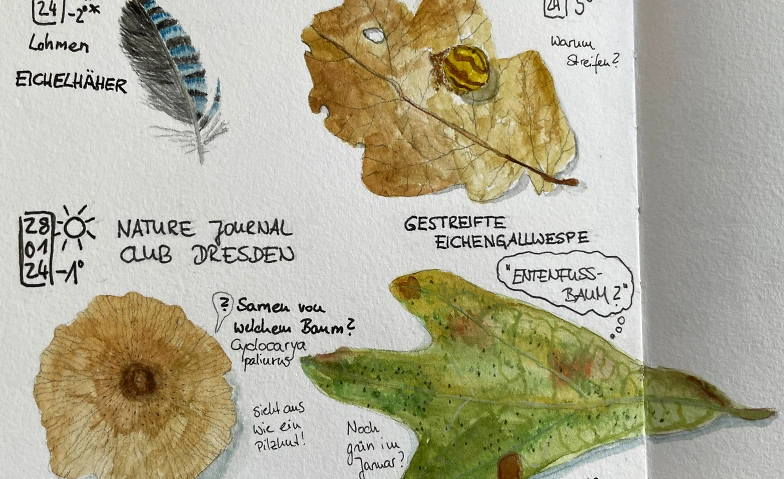 24 -2°*
Lohmen
EICHELHÄHER
24 5°
Warum
Streifen?
28
01
24 -1°
NATURE JOURNAL
CLUB DRESDEN
GESTREIFTE
EICHENGALLWESPE
"ENTENFUSS-
BAUM?"
? Samen von
welchem Baum?
Cyclocarya
paliurus
sieht aus
wie ein
Pilzhut!
Noch
grün im
Januar?